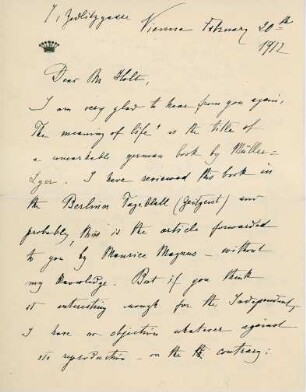 7, Zedlitzgasse Vienna February 20th
1912
Dear Mr Holt,
I am very glad to hear from you again.
The meaning of life" is the title of
a remarkable german book by Müller-
Lyer. I have reviewed the book in
the Berliner Tageblatt (Zeitgeist) and
probably, this is the article forwarded
to you by Maurice Magnus - without
my knowledge. But if you think
it interesting enough for the Independent,
I have no objection whatever against
its reproduction - on the contrary: